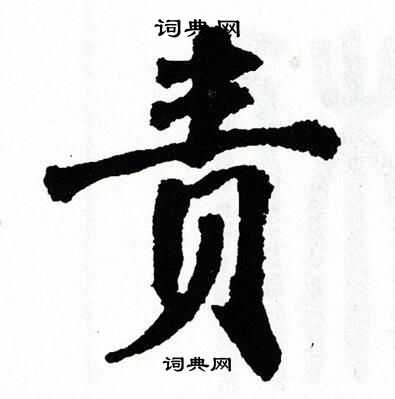 词典网
责
词典网